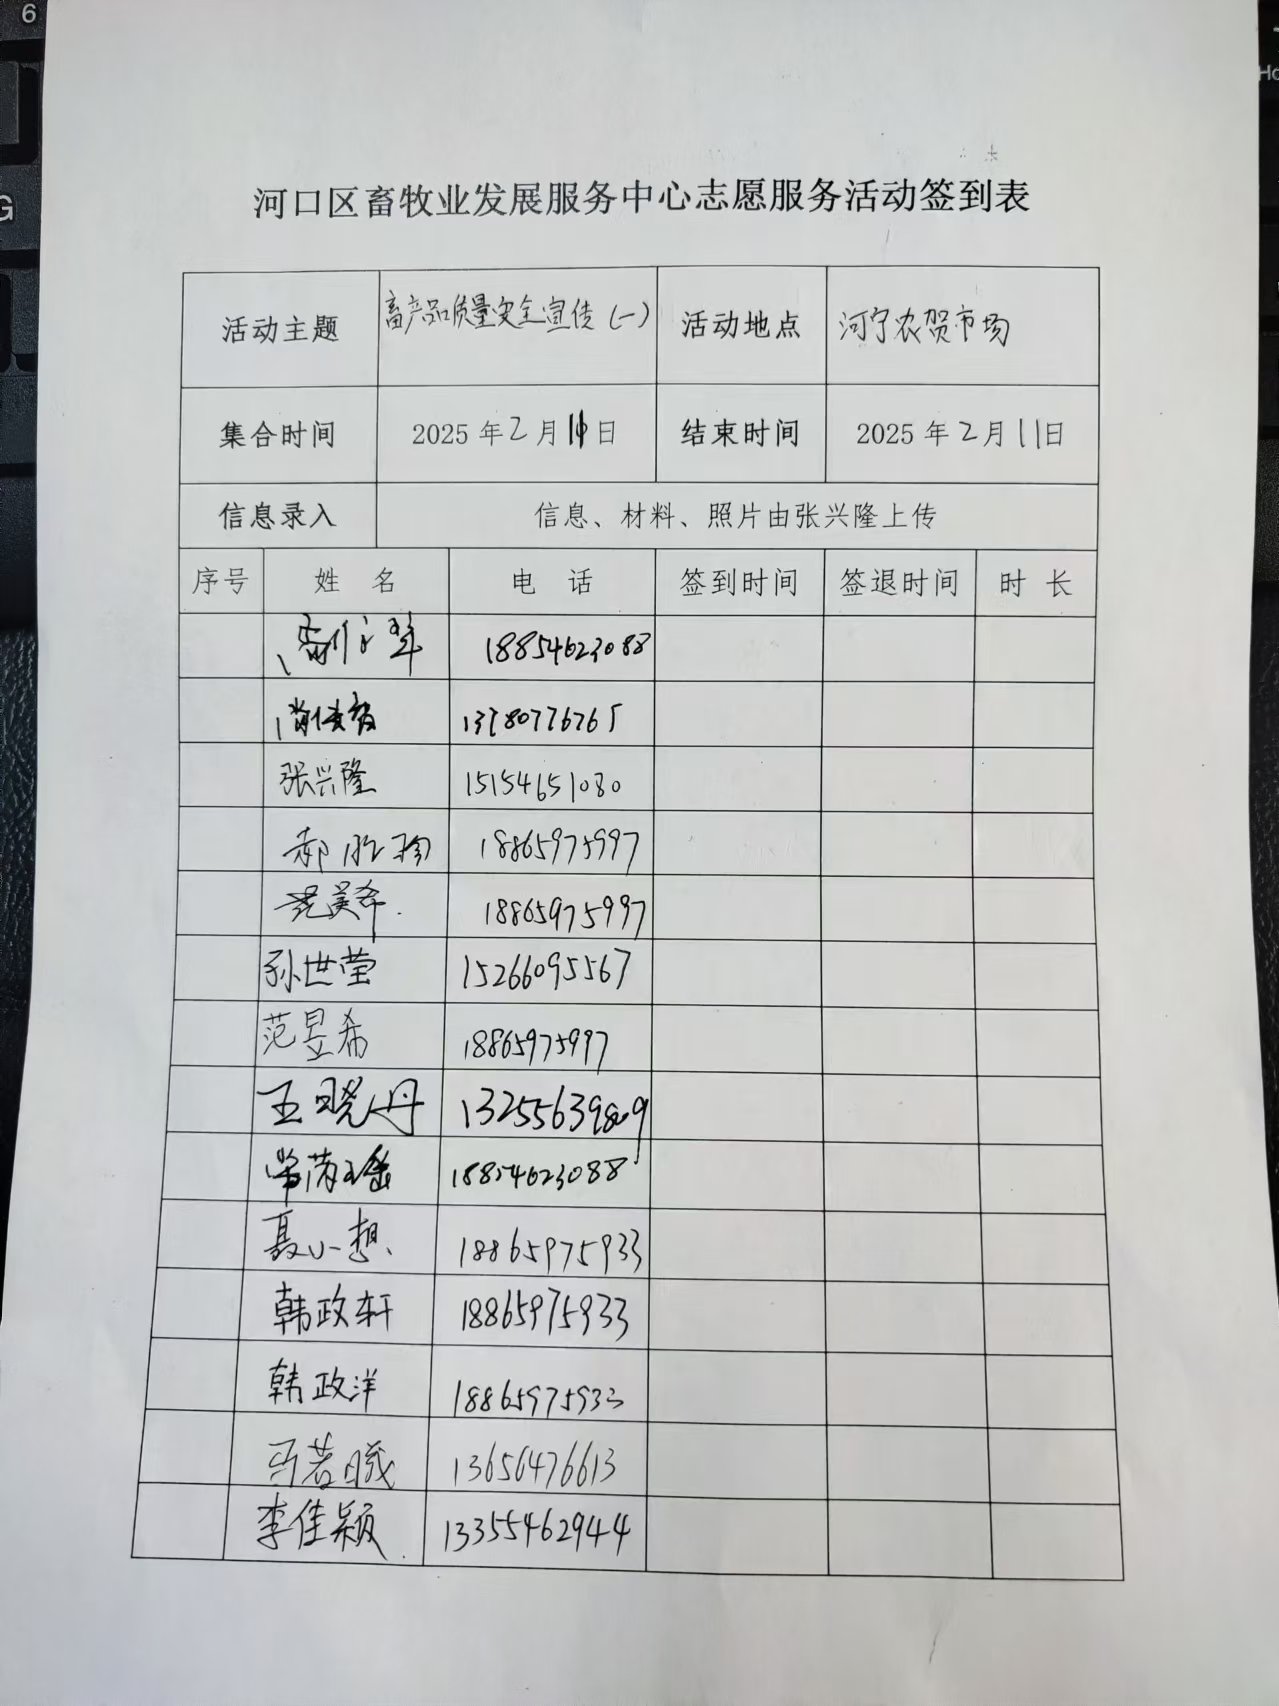 河口区畜牧业发展服务中心志愿服务活动签到表
活动主题 畜产品质量安全宣传（一） 活动地点 河宁农贸市场
集合时间 2025年2月11日 结束时间 2025年2月11日
信息录入 信息、材料、照片由张兴隆上传
序号 姓 名 电 话 签到时间 签退时间 时 长
18854623088
张兴隆 15154651080
郝 18865975997
18865975997
孙世莹 15266095567
范昱希 18865975997
王晓丹 13255639809
18854623088
聂小想 18865975933
韩政轩 18865975933
韩政洋 18865975933
马若曦 13656476613
李佳颖 13355462944